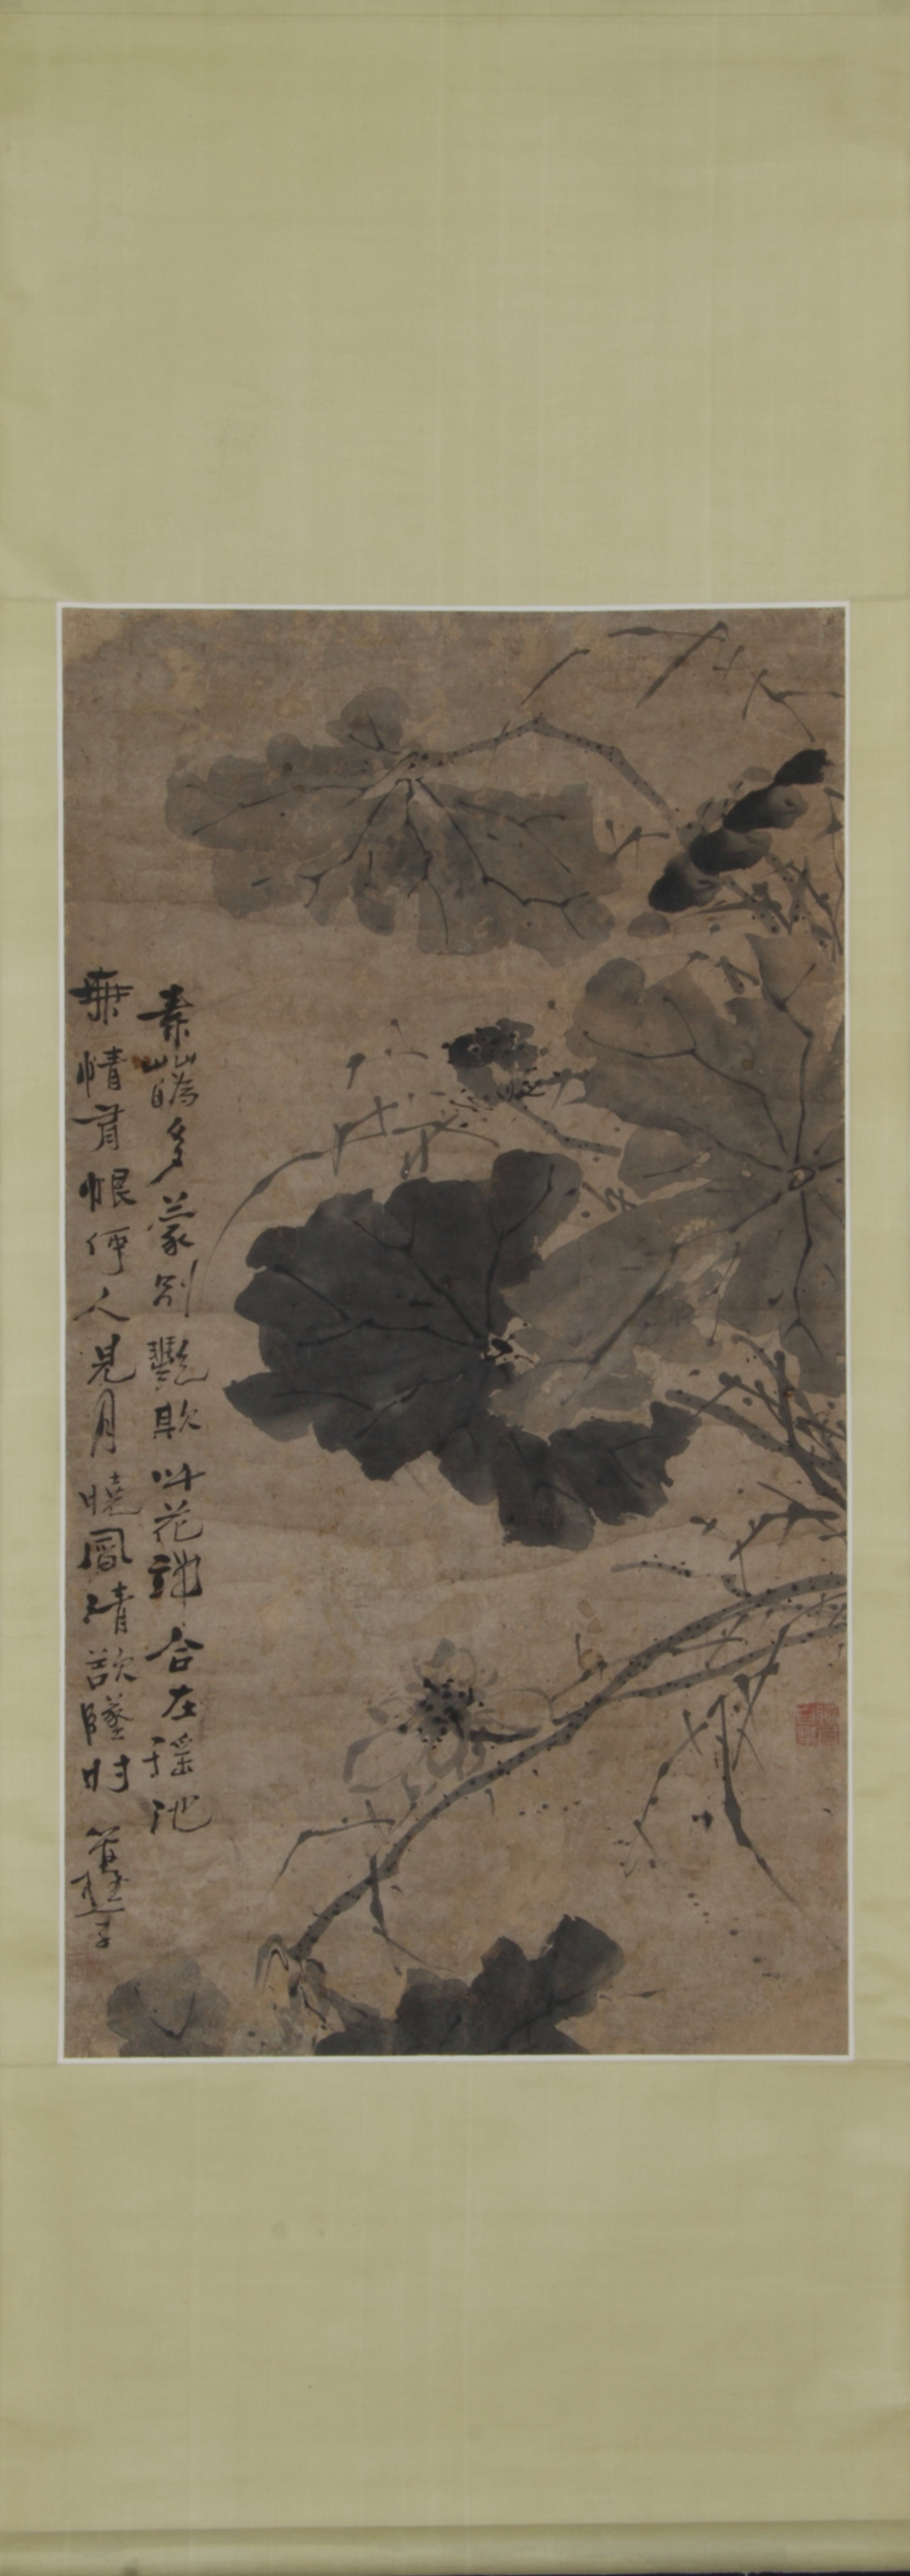 素蘤多蒙别艷欺此花端合在瑶池
無情有恨何人見月曉風清欲墜時